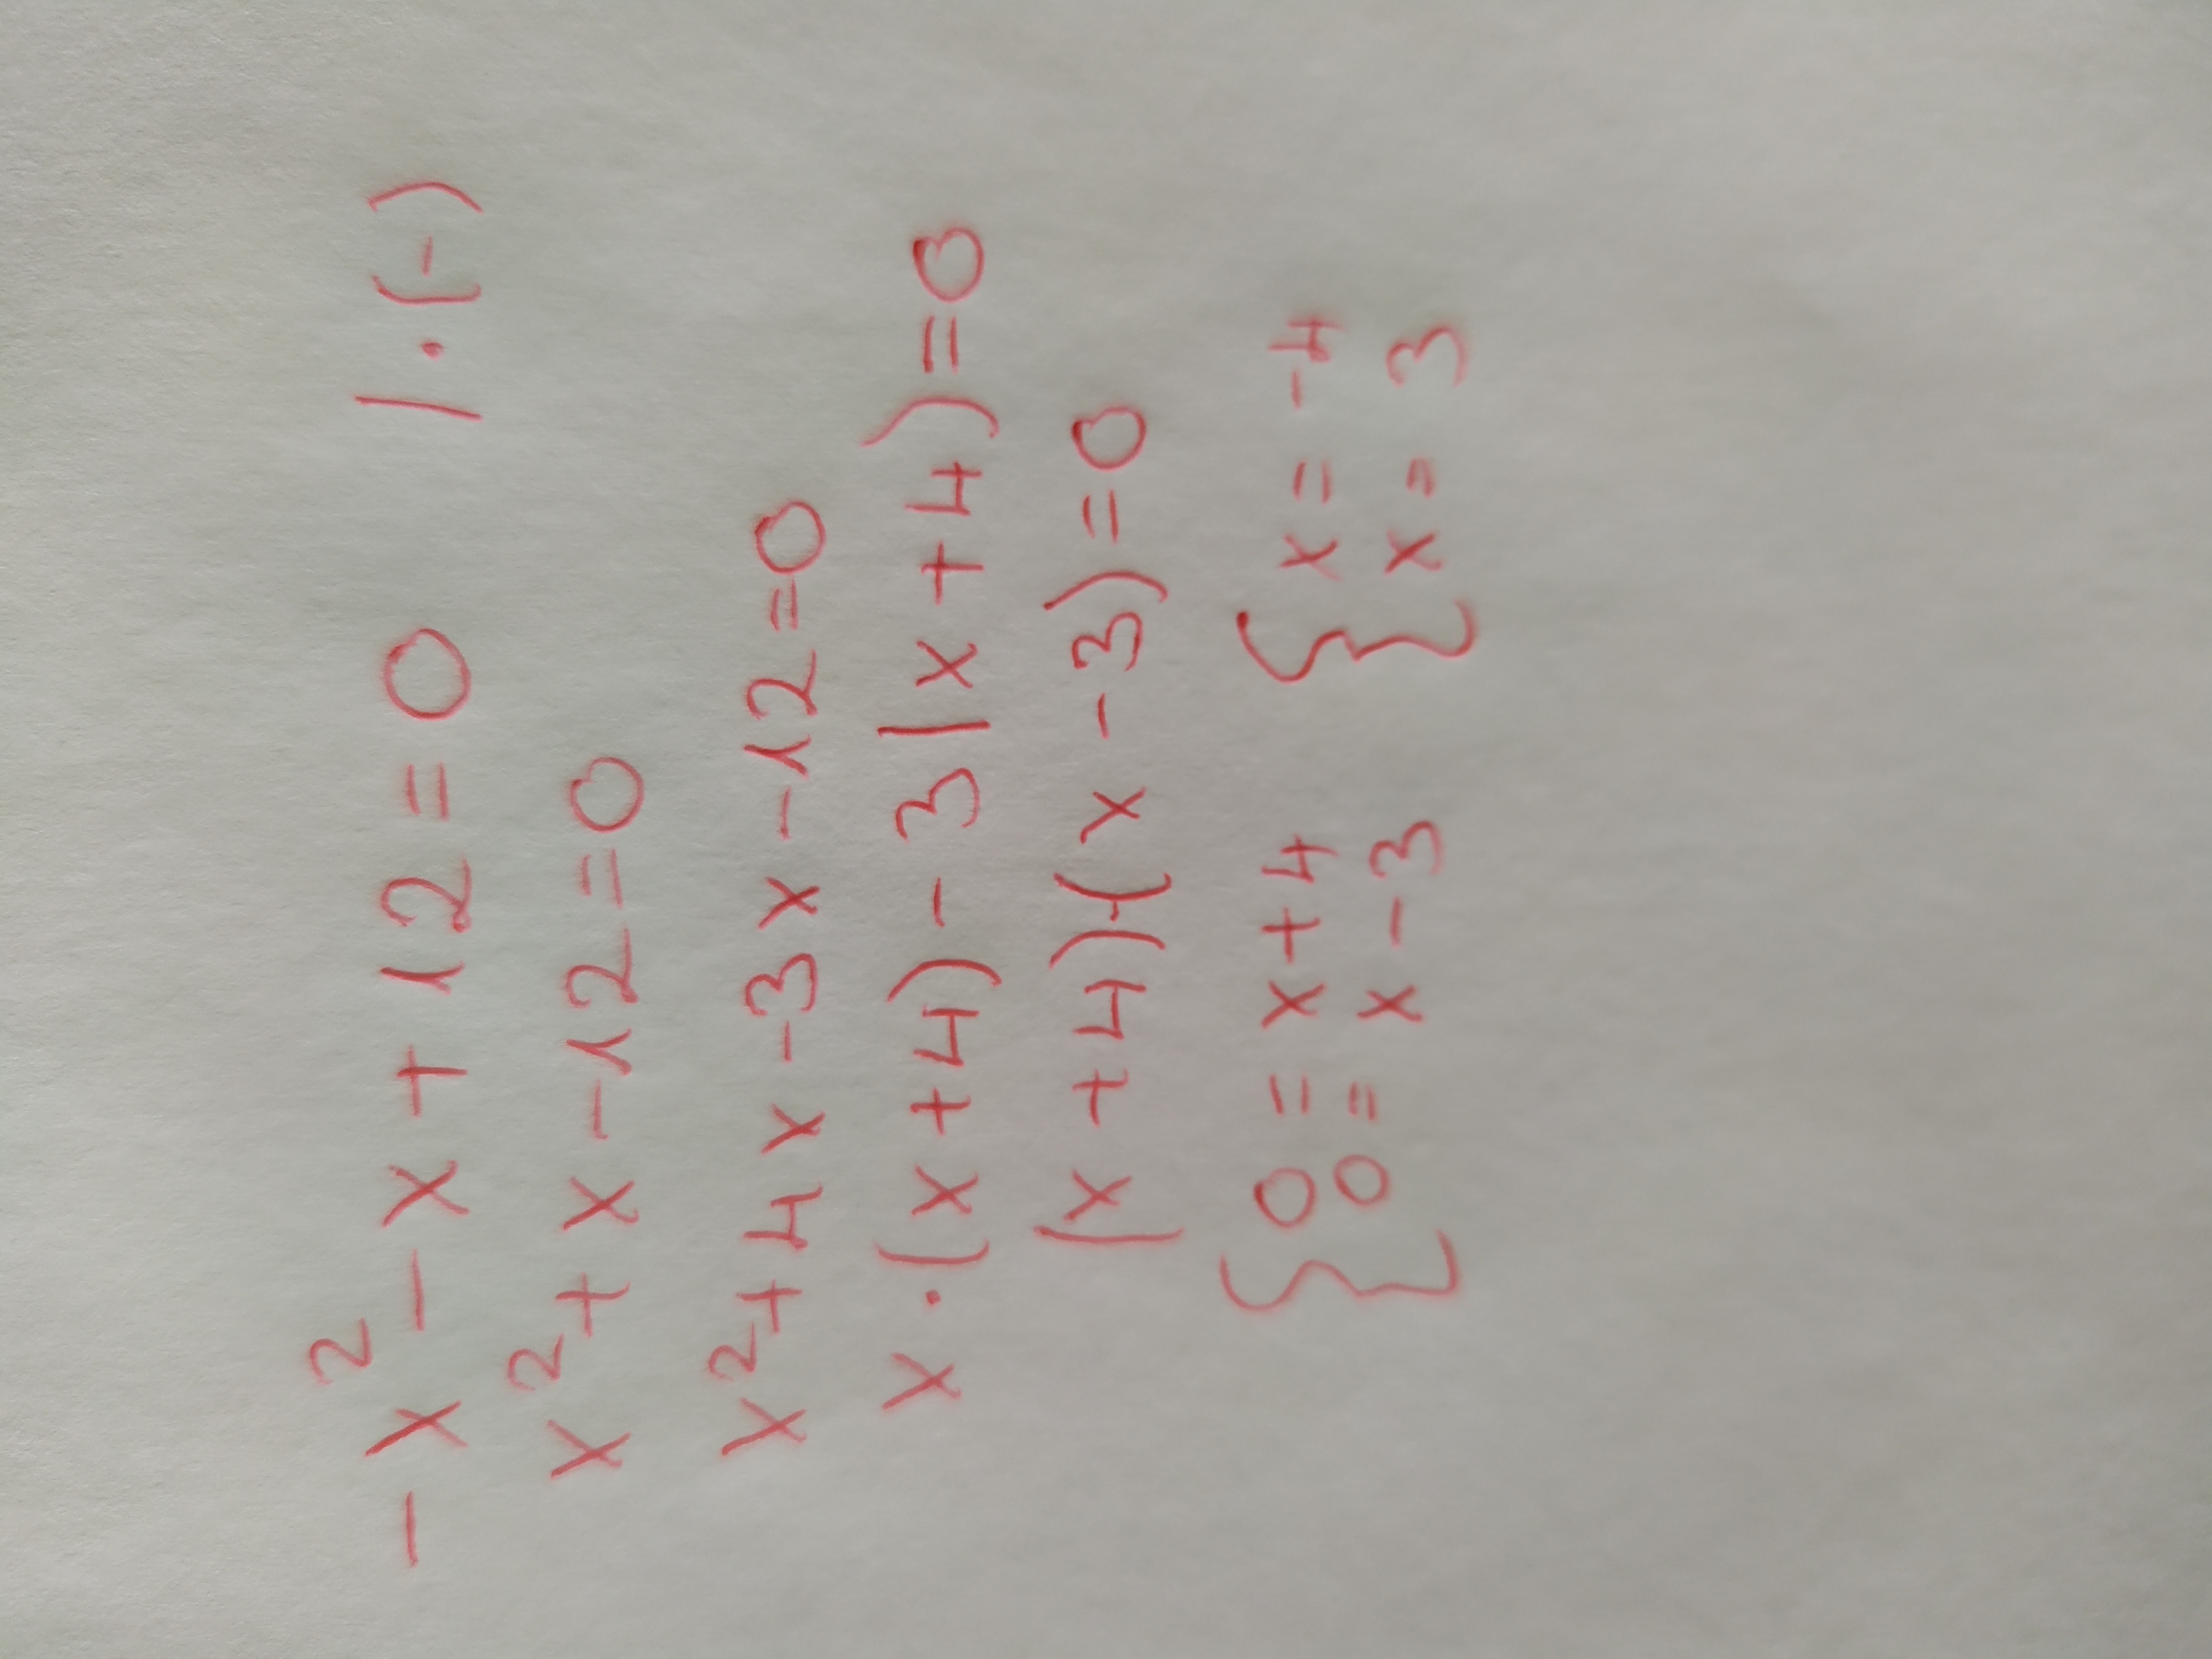 -x² - x + 12 = 0 | · (-)
x² + x - 12 = 0
x² + 4x - 3x - 12 = 0
x · (x + 4) - 3(x + 4) = 0
(x + 4)·(x - 3) = 0
{ 0 = x + 4 { x = -4
0 = x - 3 x = 3